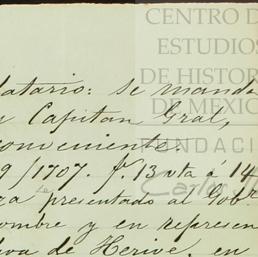 CENTRO DE
ESTUDIOS
DE HISTOR
DE MEXIC
FUNDACI
Carlos
latario: se manda
Capitan Gral,
conveniente.
9/1707. f. 13 vta á 14
presentado al Gobr
ombre y en represen
va de Herive, en